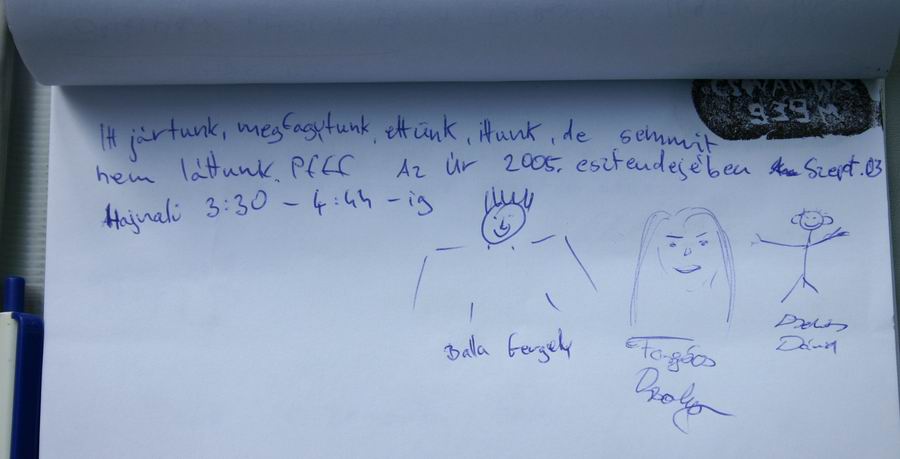 Itt jártunk, megfagytunk, ettünk, ittunk, de semmit
nem láttunk. Pfff Az Úr 2005. esztendejében Szept. 03
Hajnali 3:30 - 4:44 -ig
Balla Gergely